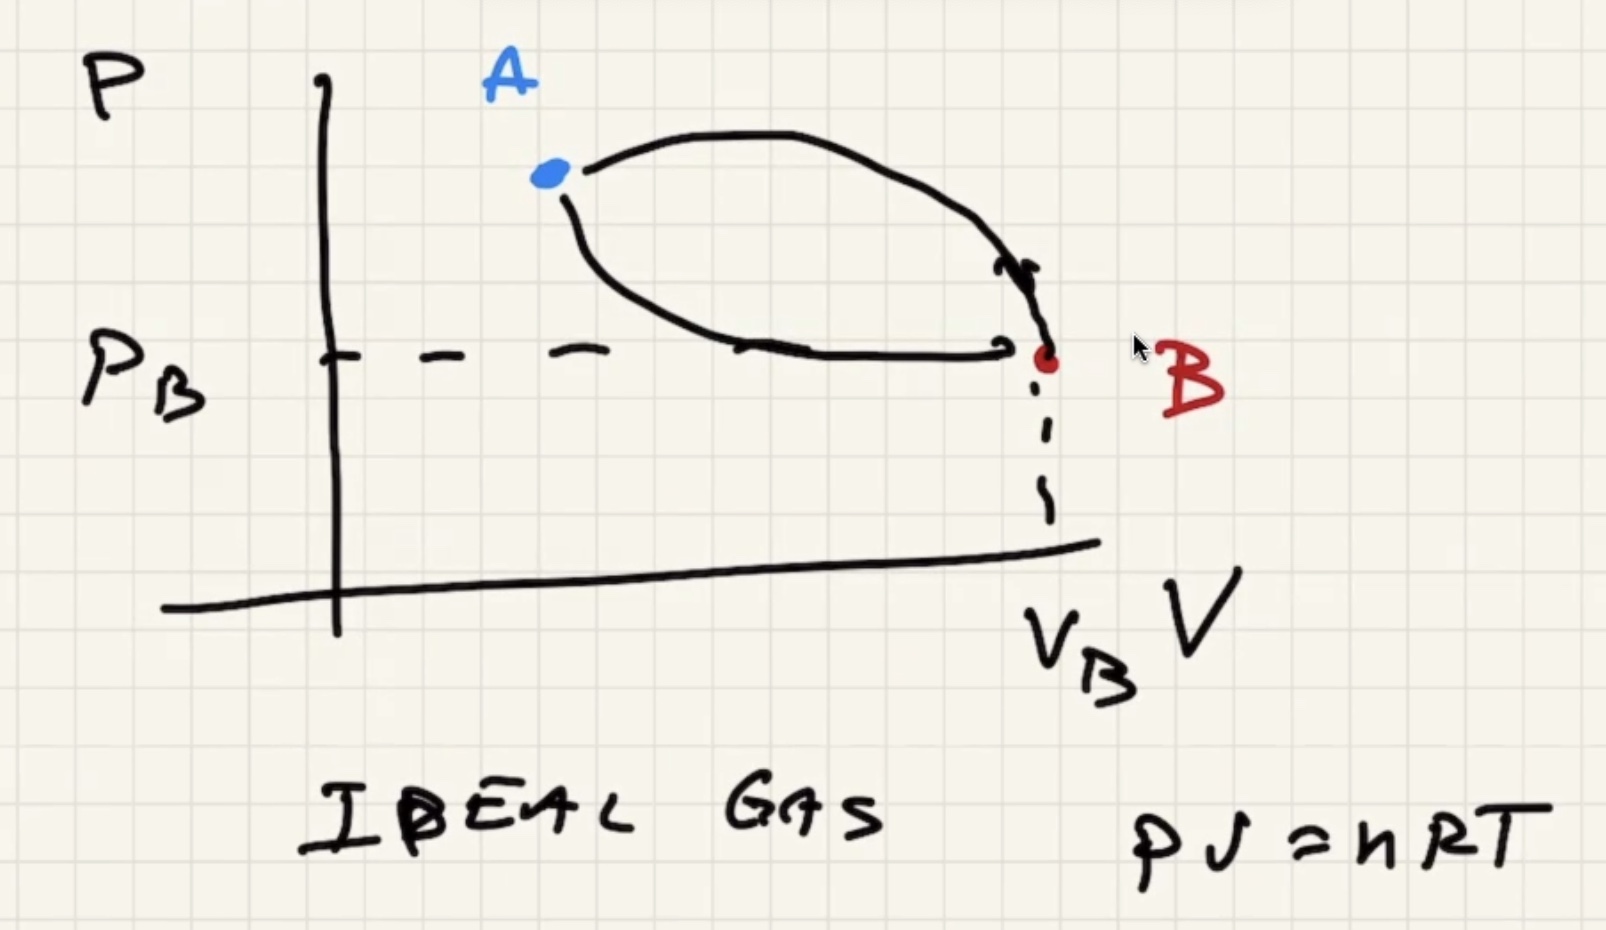 P
A
P_B
B
V_B V
IDEAL GAS
PV = nRT